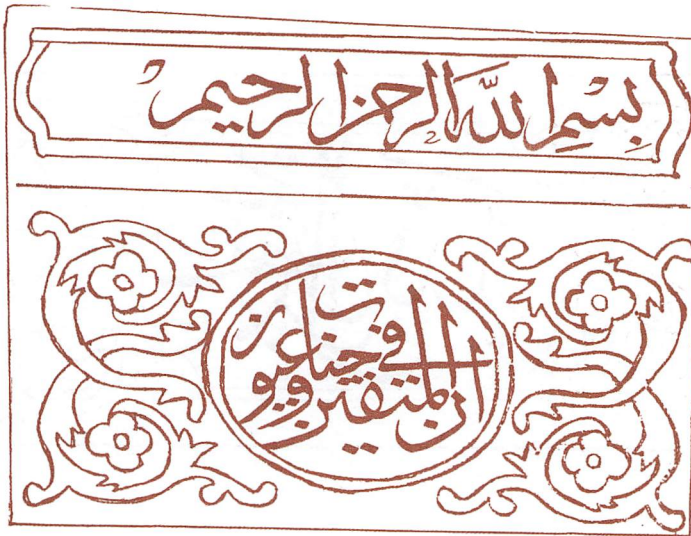 بِسْمِ اللهِ الرحمن الرحيم
ان المتقين في جنات وعيون